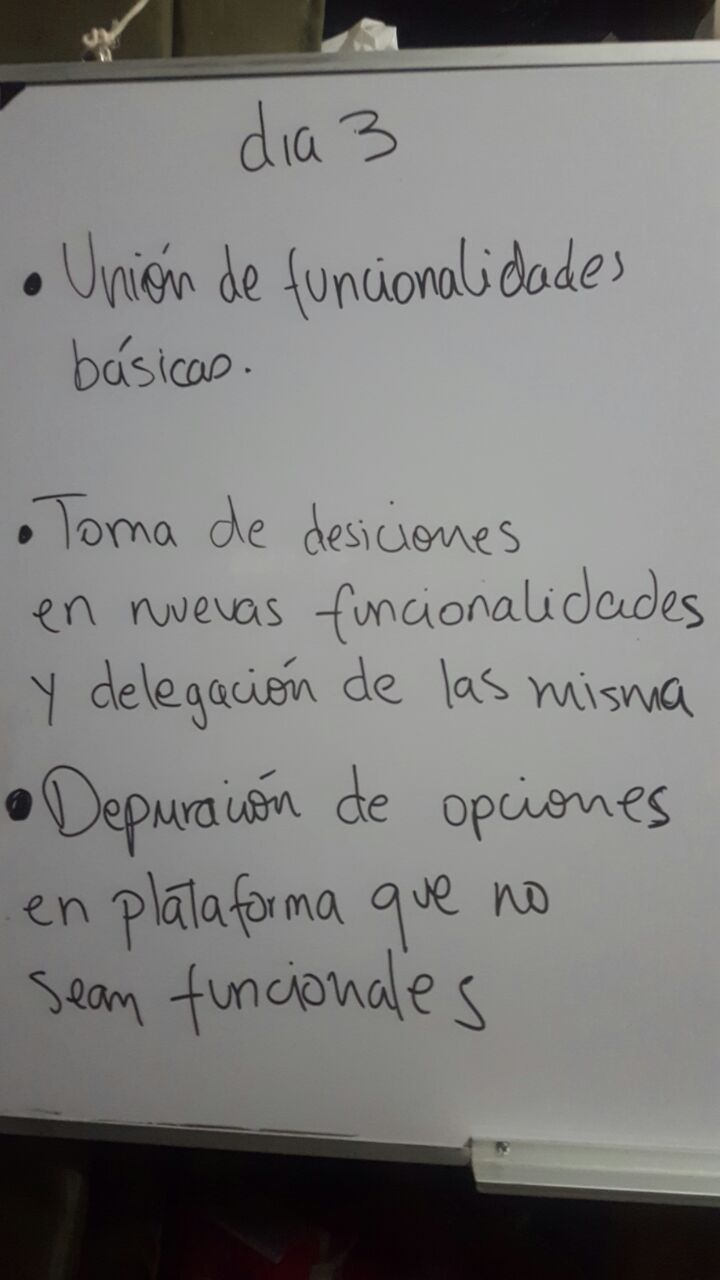 dia 3
• Unión de funcionalidades
básicas.
• Toma de desiciones
en nuevas funcionalidades
y delegación de las misma
• Depuración de opciones
en plataforma que no
sean funcionales